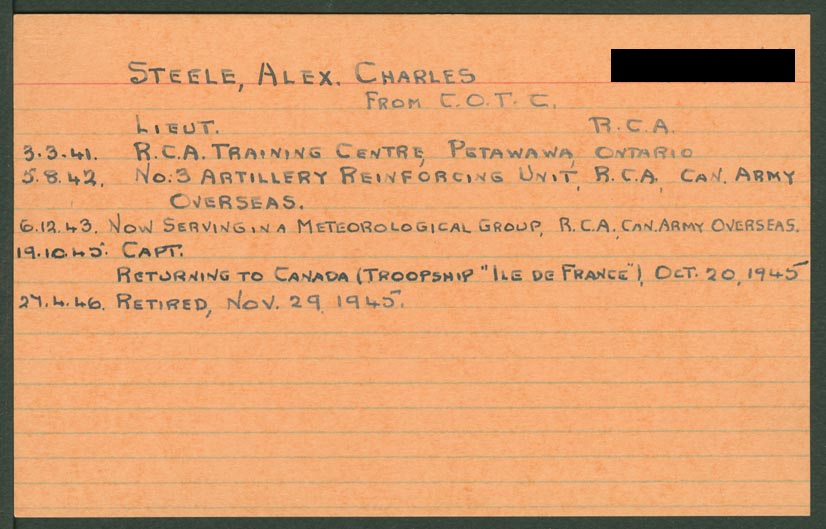 STEELE, ALEX. CHARLES
FROM C.O.T.C.
LIEUT. R.C.A.
3.3.41. R.C.A. TRAINING CENTRE, PETAWAWA, ONTARIO
5.8.42. NO:3 ARTILLERY REINFORCING UNIT, R.C.A., CAN. ARMY
OVERSEAS.
6.12.43. NOW SERVING IN A METEOROLOGICAL GROUP, R.C.A., CAN. ARMY OVERSEAS.
19.10.45. CAPT.
RETURNING TO CANADA (TROOPSHIP "ILE DE FRANCE"), OCT. 20, 1945
27.4.46. RETIRED, NOV. 29, 1945.